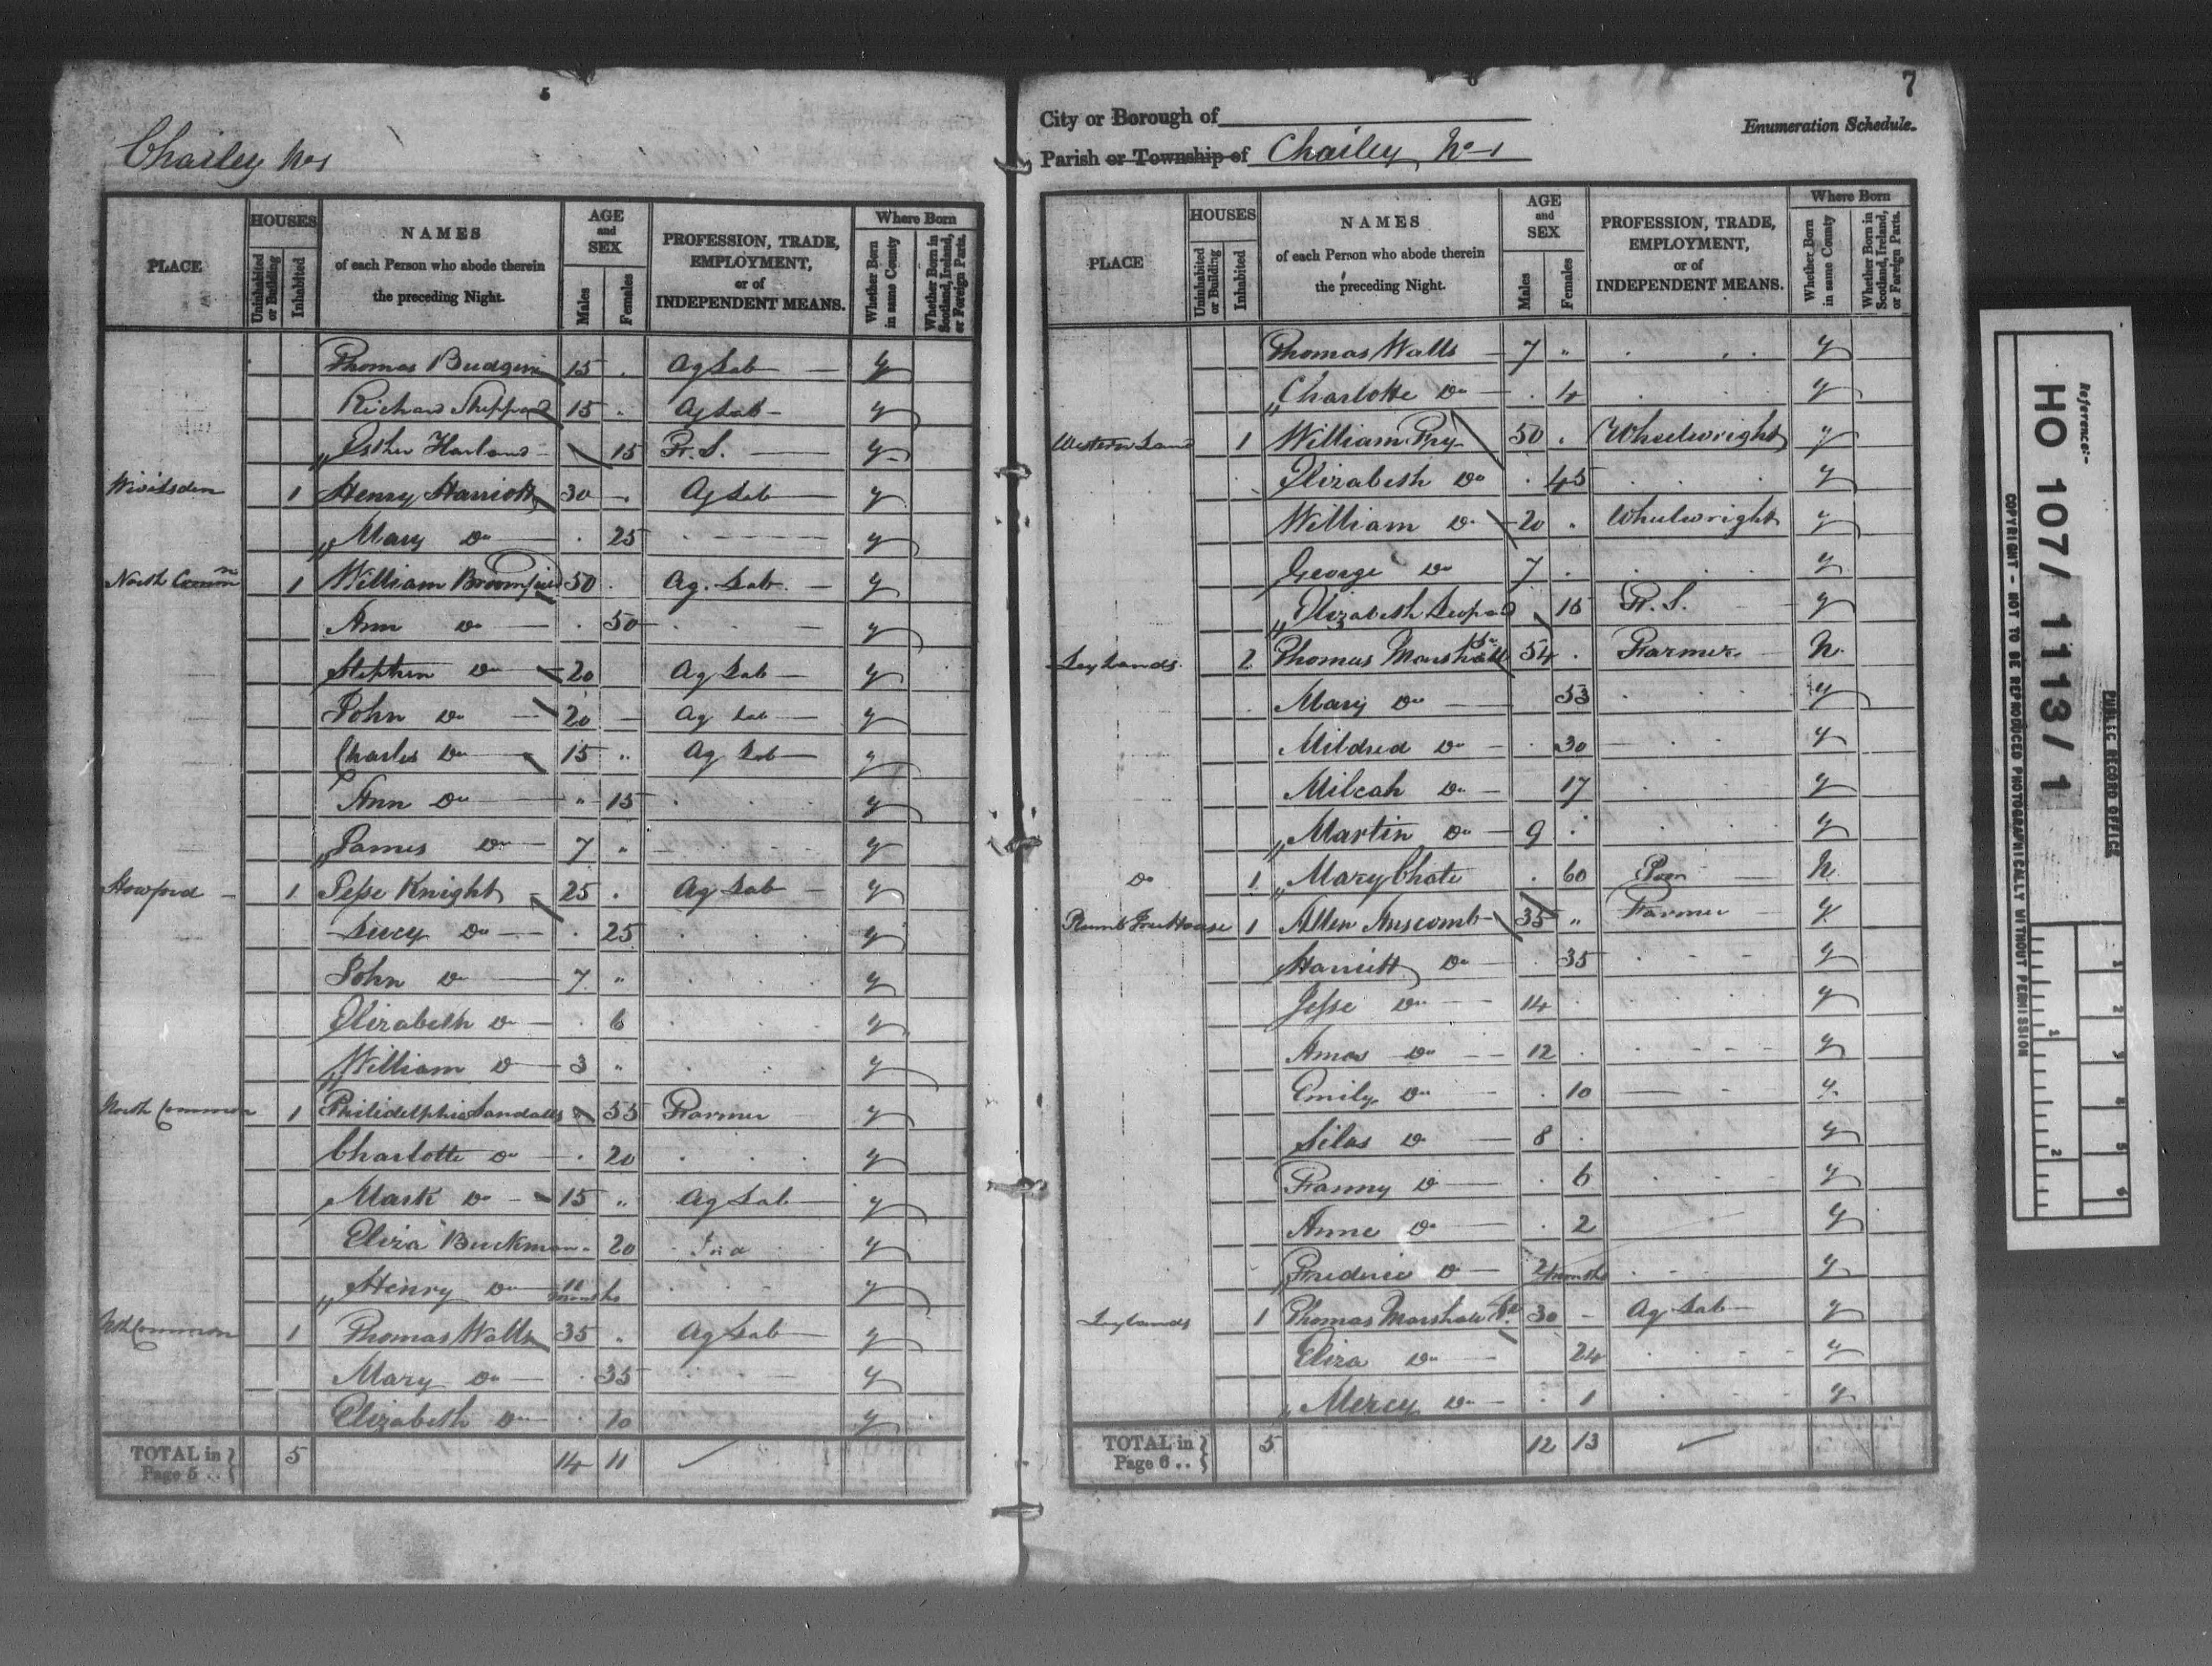 5
Chailey No 1
PLACE
HOUSES
Uninhabited or Building
Inhabited
NAMES
of each Person who abode therein
the preceding Night.
AGE
and
SEX
Males
Females
PROFESSION, TRADE,
EMPLOYMENT,
or of
INDEPENDENT MEANS.
Where Born
Whether Born in same County
Whether Born in Scotland, Ireland, or Foreign Parts.
Thomas Budgen 15 Ag Lab y
Richard Sheppard 15 Ag Lab y
Esther Harland 15 F. S. y
1 Henry Harriott 30 Ag Lab y
Mary Do 25 y
North Common 1 William Broomfield 50 Ag. Lab. y
Ann Do 50 y
Stephen Do 20 Ag Lab y
John Do 20 Ag Lab y
Charles Do 15 Ag Lab y
Ann Do 15 y
James Do 7 y
1 Jesse Knight 25 Ag Lab y
Lucy Do 25 y
John Do 7 y
Elizabeth Do 6 y
William Do 3 y
North Common 1 Philidelphia Sandalls 55 Farmer y
Charlotte Do 20 y
Mark Do 15 Ag Lab y
Eliza Buckman 20 Ind y
Henry Do 11 months y
Nth Common 1 Thomas Walls 35 Ag Lab y
Mary Do 35 y
Elizabeth Do 10 y
TOTAL in Page 5 .. 5 14 11
6
7
City or Borough of
Enumeration Schedule.
Parish or Township of Chailey No 1
PLACE
HOUSES
Uninhabited or Building
Inhabited
NAMES
of each Person who abode therein
the preceding Night.
AGE
and
SEX
Males
Females
PROFESSION, TRADE,
EMPLOYMENT,
or of
INDEPENDENT MEANS.
Where Born
Whether Born in same County
Whether Born in Scotland, Ireland, or Foreign Parts.
Thomas Walls 7 y
Charlotte Do 4 y
1 William Fry 50 Wheelwright y
Elizabeth Do 45 y
William Do 20 Wheelwright y
George Do 7 y
Elizabeth Leopard 15 F. S. y
Leylands 2 Thomas Marshall Sr 54 Farmer N.
Mary Do 53 y
Mildred Do 30 y
Milcah Do 17 y
Martin Do 9 y
Do 1 Mary Chate 60 N
Plumb Tree House 1 Allen Anscomb 35 Farmer y
Harriett Do 35 y
Jesse Do 14 y
Amos Do 12 y
Emily Do 10 y
Silas Do 8 y
Fanny Do 6 y
Anne Do 2 y
Frederic Do 2 months y
Leylands 1 Thomas Marshall Jr. 30 Ag Lab y
Eliza Do 24 y
Mercy Do 1 y
TOTAL in Page 6 .. 5 12 13
Reference:-
HO 107/1113/1
PUBLIC RECORD OFFICE
COPYRIGHT - NOT TO BE REPRODUCED PHOTOGRAPHICALLY WITHOUT PERMISSION
1
2